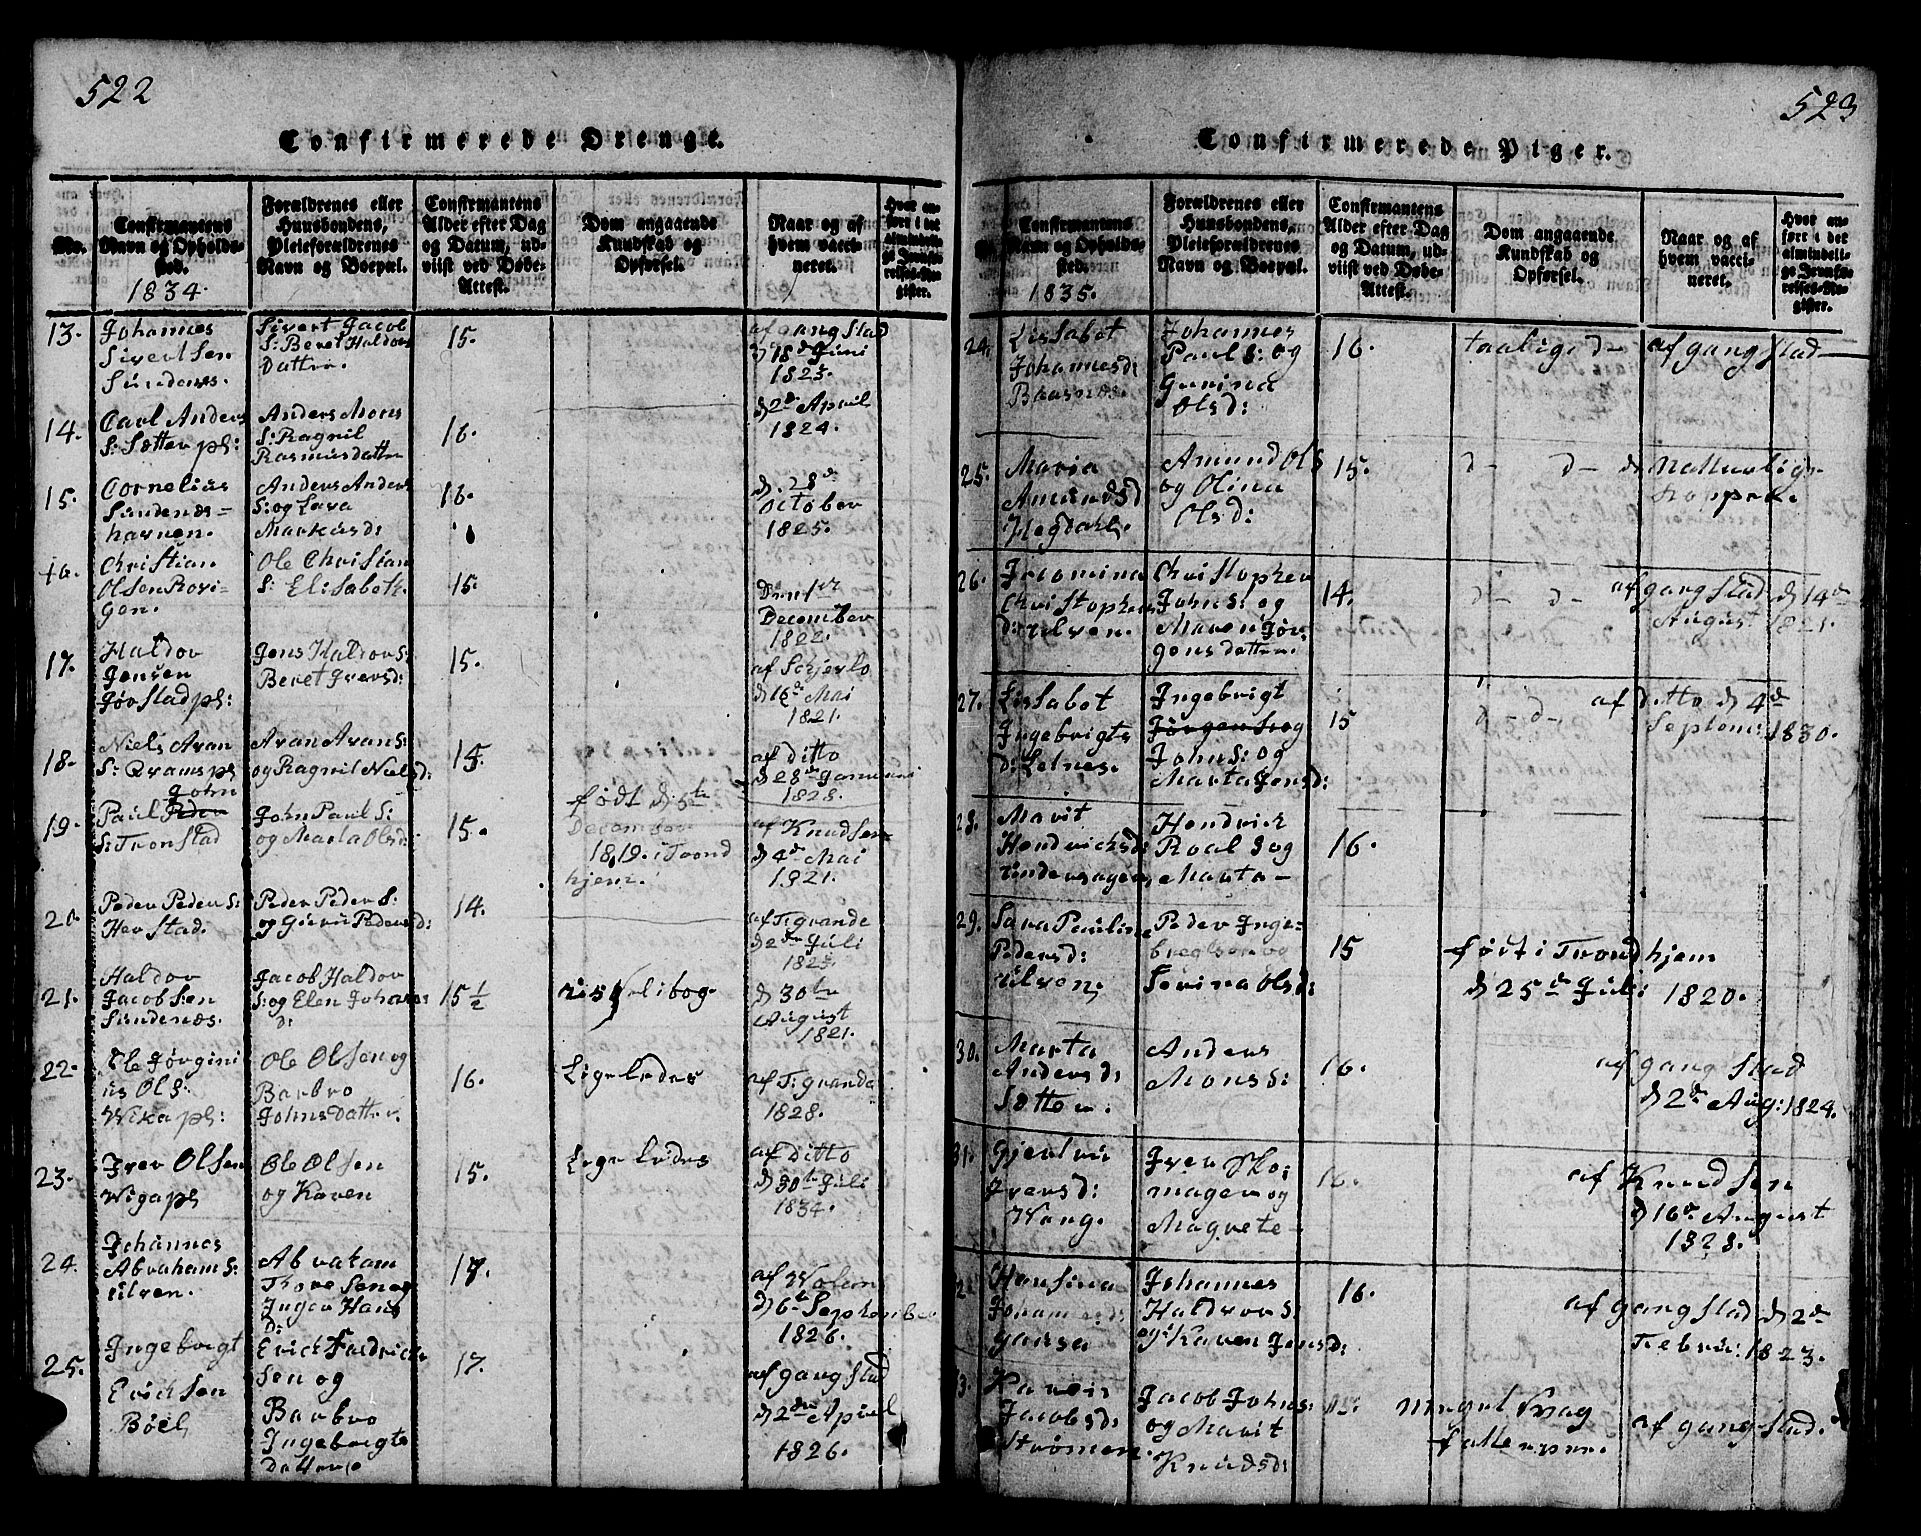 522
Confirmerede Drenge.
No.
Confirmantens
Navn og Opholds-
sted.
1834.
Forældrenes eller
Huusbondens,
Pleieforældrenes
Navn og Boepæl.
Confirmantens
Alder efter Dag
og Datum, ud-
viist ved Døbe-
Attest.
Dom angaaende
Kundskab og
Opførsel.
Naar og af
hvem vacci-
neret.
Hvor an-
ført i det
almindeli-
ge Jevnfø-
relses-Re-
gister.
13.
Johannes
Sivertsen
Sundnes.
Sivert Jacob
S: Beret Haldors
Datter.
15.
af gangstad
d 18de Juni
1823.
14.
Carl Anders
S: Sætter pl:
Anders Mons
S: Ragnil
Rasmusdatter
16.
d 2de April
1824.
15.
Cornelius
Sundnes=
havnen.
Anders Anders
S: og Lava
Markusd:
16.
d. 28de
October
1825.
16.
Christian
Olsen Rovi-
gen.
Ole Christian
S: Elisabeth.
15.
Den 1ste
December
1822.
17.
Haldor
Jensen
Jørstad pl:
Jens Haldor S:
Beret Iversd:
15.
af Schjerlo
d 16de Mai
1821.
18.
Niels Aran
S: Qvams pl
Aran Aran S:
og Ragnil Nielsd:
15.
af ditto
d 28de Januari
1828.
19.
John
Paul Peder
S: Tronstad
John Paul S:
og Marta Olsd:
15.
født d 5te
December
1819. i Trond
hjem.
af Knudsen
d 4de Mai
1821.
20.
Peder Peder S:
Herstad.
Peder Peder S:
og Guru Pedersd:
14.
af T: grande
d 2den Juli
1823.
21.
Haldor
Jacobsen
Sundnæs.
Jacob Haldor
S: og Elen Johanes
d:
15 1/2
d 30te
August
1821.
22.
Ole Jørgini
us Ols:
Wika pl:
Ole Olsen og
Barbro
Johnsdatter.
16.
Ligeledes
af T: granda
1828.
23.
Iver Olsen
Wiga pl
Ole Olsen
og Karen
15.
Ligeledes
af ditto
d 30te Juli
1834.
24.
Johannes
Abraham S:
Ulven.
Abraham
Thoresen og
Inger Hans
D:
17.
af Wolem
d 6te September
1826.
25.
Ingebrigt
Erichsen
Bøel
Erich Fredrich
Sen og
Barbro
Ingebrigts
Datter
17.
af gangstad
d 2den April
1826.
523
Confirmerede Piger.
Confirmantens
Navn og Opholds-
sted.
1835.
Forældrenes eller
Huusbondens,
Pleieforældrenes
Navn og Boepæl.
Confirmantens
Alder efter Dag
og Datum, ud-
viist ved Døbe-
Attest.
Dom angaaende
Kundskab og
Opførsel.
Naar og af
hvem vacci-
neret.
Hvor an-
ført i det
almindeli-
ge Jevnfø-
relses-Re-
gister.
24.
Lissabet
Johannesd:
Baasnes.
Johannes
Paul S: og
Gurina
Olsd:
16.
taalige d-
af gangstad
25.
Maria
Amundsd
Hegdahl.
Amund Ols
og Olina
Olsd:
15.
d- d-
Natturlige
kopper.
26.
Jacomina
Christophers
d: Ulven.
Christopher
John S: og
Maren Jør
gensdatter.
14.
d- d-
af gangstad d 14de
August 1821.
27.
Lissabet
Ingebrigts
d: Selnes.
Ingebrigt
Jørgens og
John S: og
Marta Jensd:
15
d- d-
af ditto d 4de
Septem: 1830.
28.
Marit
Hendrichsd:
Hendrich
Roal S og
Marta -
16.
29.
Sara Pauline
Pedersd:
Ulven.
Peder Inge-
bregtsen og
Serina Olsd:
15
født i Trondhjem
d 25de Juli 1820.
30.
Marta
Andersd:
Sætter.
Anders
Mons S:
16.
af gangstad
d 2de Aug: 1824.
31.
Iversd:
Wang.
Iver Sko:
mager og
Magrete -
16.
af Knudsen
d 16de August
1828.
Hansina
Johannes
Haldvor S:
og Karen Jensd:
16.
af gangstad d 2de
Februr: 1823.
Jacobsd:
Strømen.
Jacob Johns:
og Marit
Knudsd:
meget svag
fatteevne.
af gangstad.